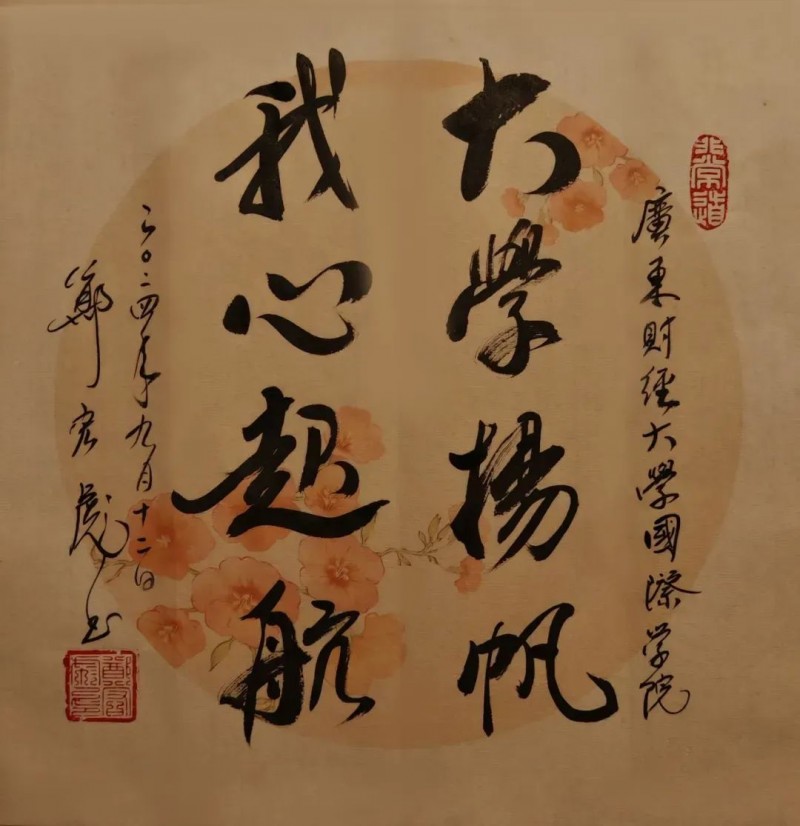 廣東財經大學國際学院
大學揚帆
我心起航
二〇二四年九月十二日
鄭宏彪书
非常道